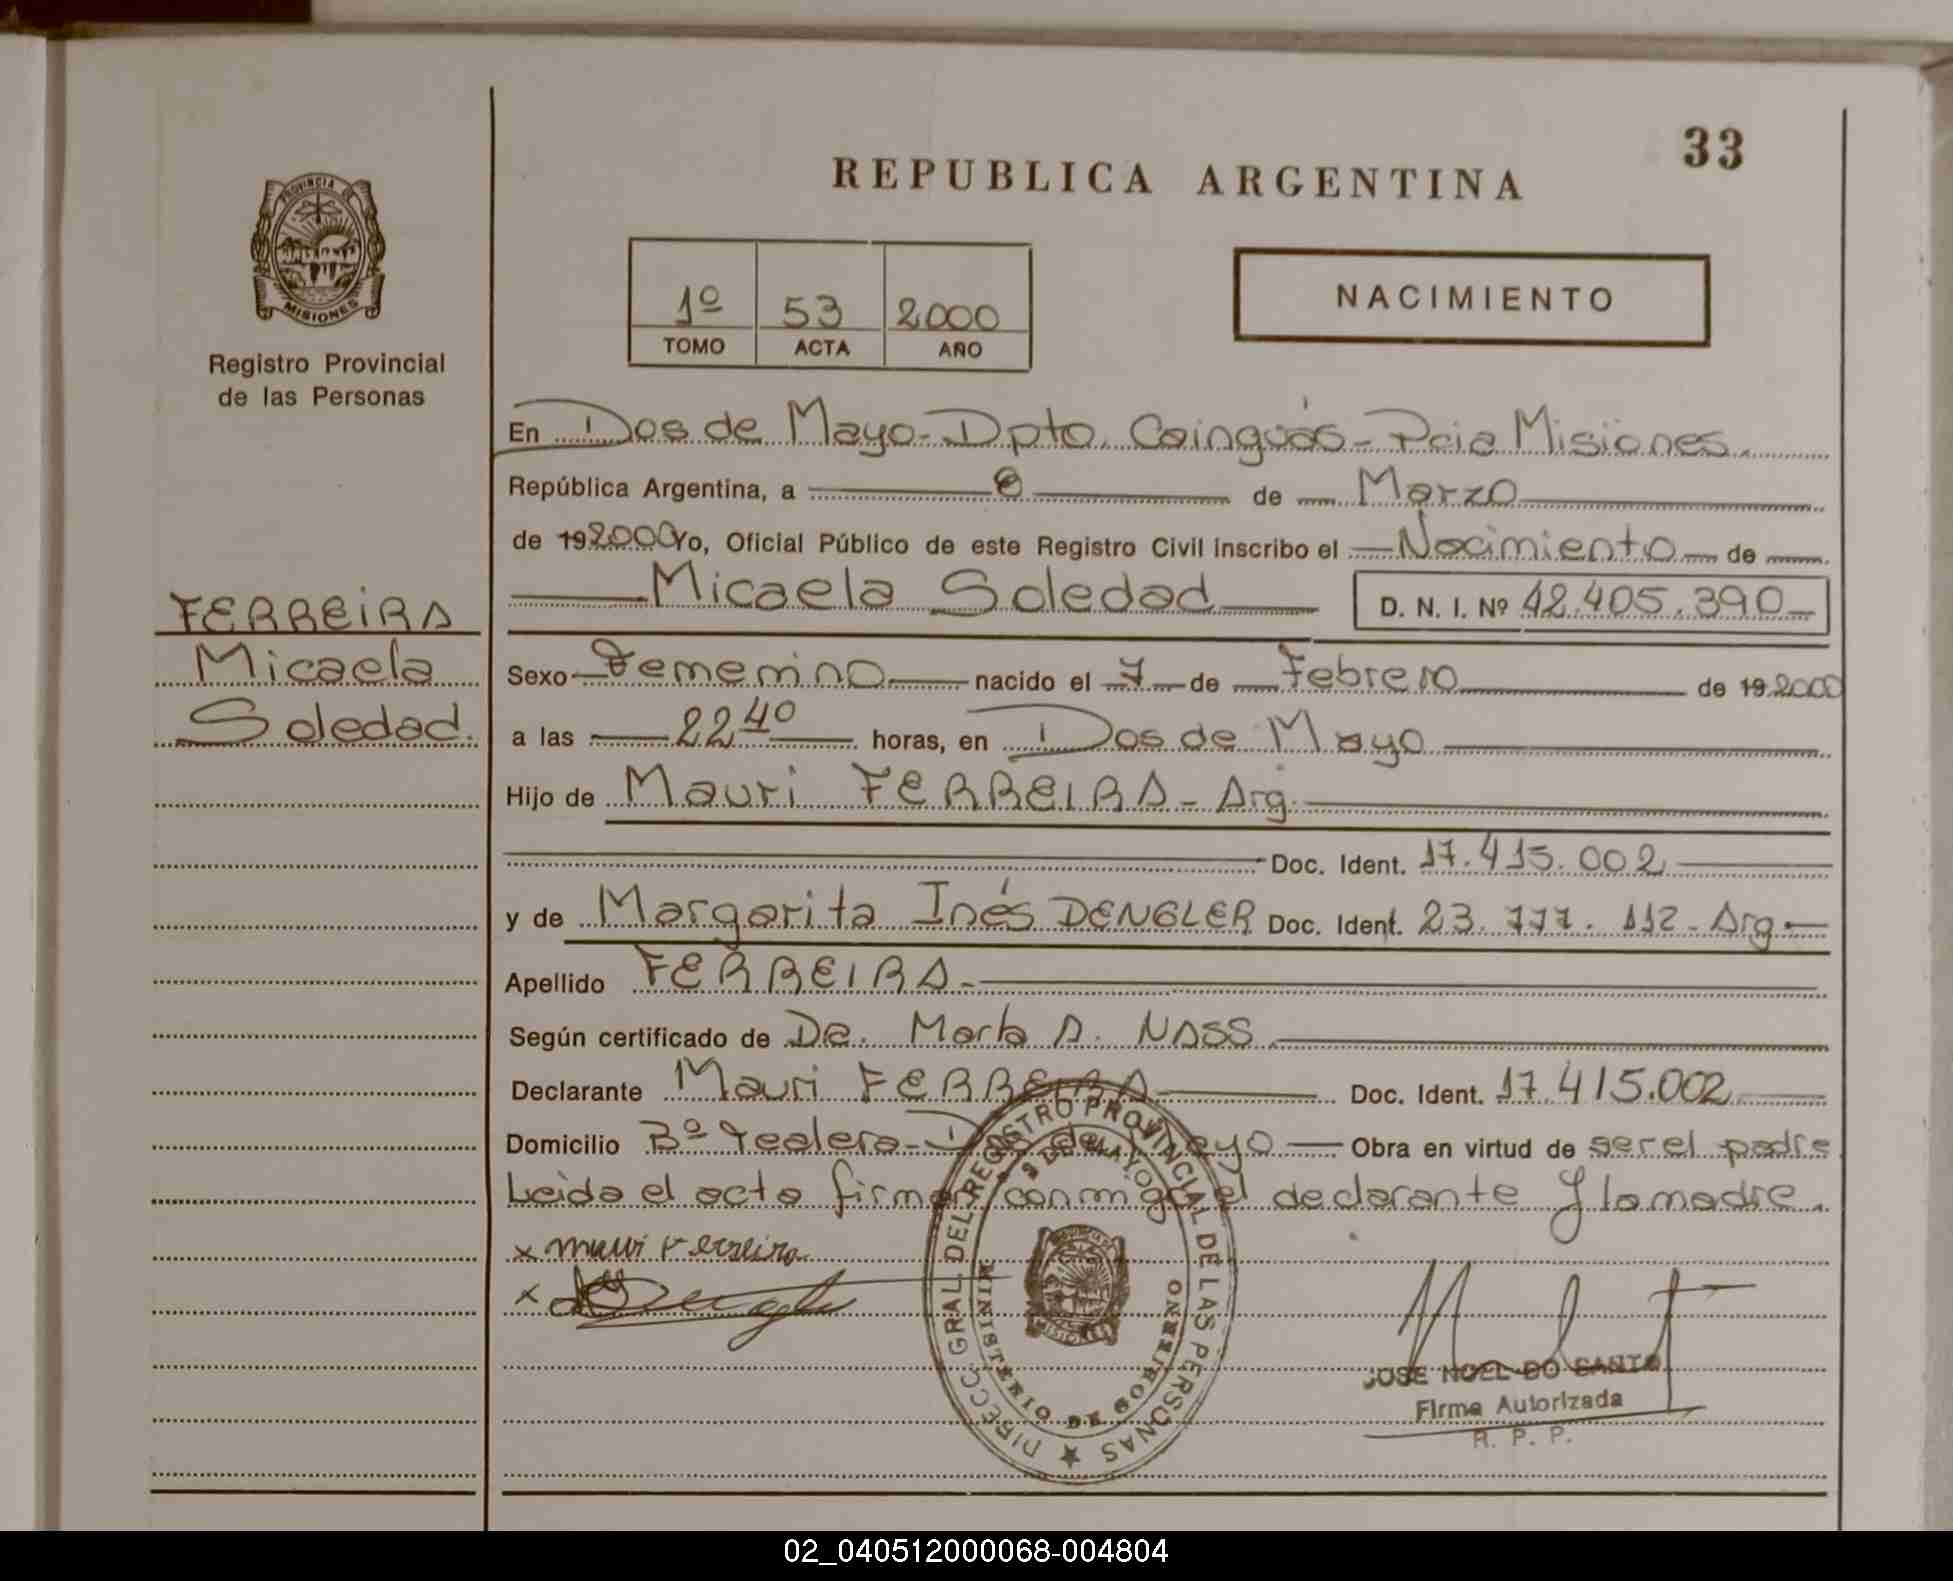 33
REPUBLICA ARGENTINA
PROVINCIA DE
MISIONES
Registro Provincial
de las Personas
1º 53 2000
TOMO ACTA AÑO
NACIMIENTO
En Dos de Mayo - Dpto. Cainguás - Pcia Misiones.
República Argentina, a 8 de Marzo
de 192000 Yo, Oficial Público de este Registro Civil inscribo el Nacimiento de
Micaela Soledad D. N. I. Nº 42.405.390
FERREIRA
Micaela
Soledad.
Sexo Femenino nacido el 7 de Febrero de 19 2000
a las 22 40 horas, en Dos de Mayo
Hijo de Mauri FERREIRA - Arg.
Doc. Ident. 17.415.002
y de Margarita Inés DENGLER Doc. Ident. 23.777.112 - Arg.
Apellido FERREIRA.
Según certificado de Dra. Marta A. NASS.
Declarante Mauri FERREIRA Doc. Ident. 17.415.002
Domicilio Bº Tealera - Dos de Mayo Obra en virtud de ser el padre
Leida el acta firman conmigo el declarante y la madre.
x Mauri Ferreira
x
DIRECC. GRAL. DEL REGISTRO PROVINCIAL DE LAS PERSONAS
2 DE MAYO
MINISTERIO DE GOBIERNO
MISIONES
JOSE NOEL DO SANTO
Firma Autorizada
R. P. P.
02_040512000068-004804